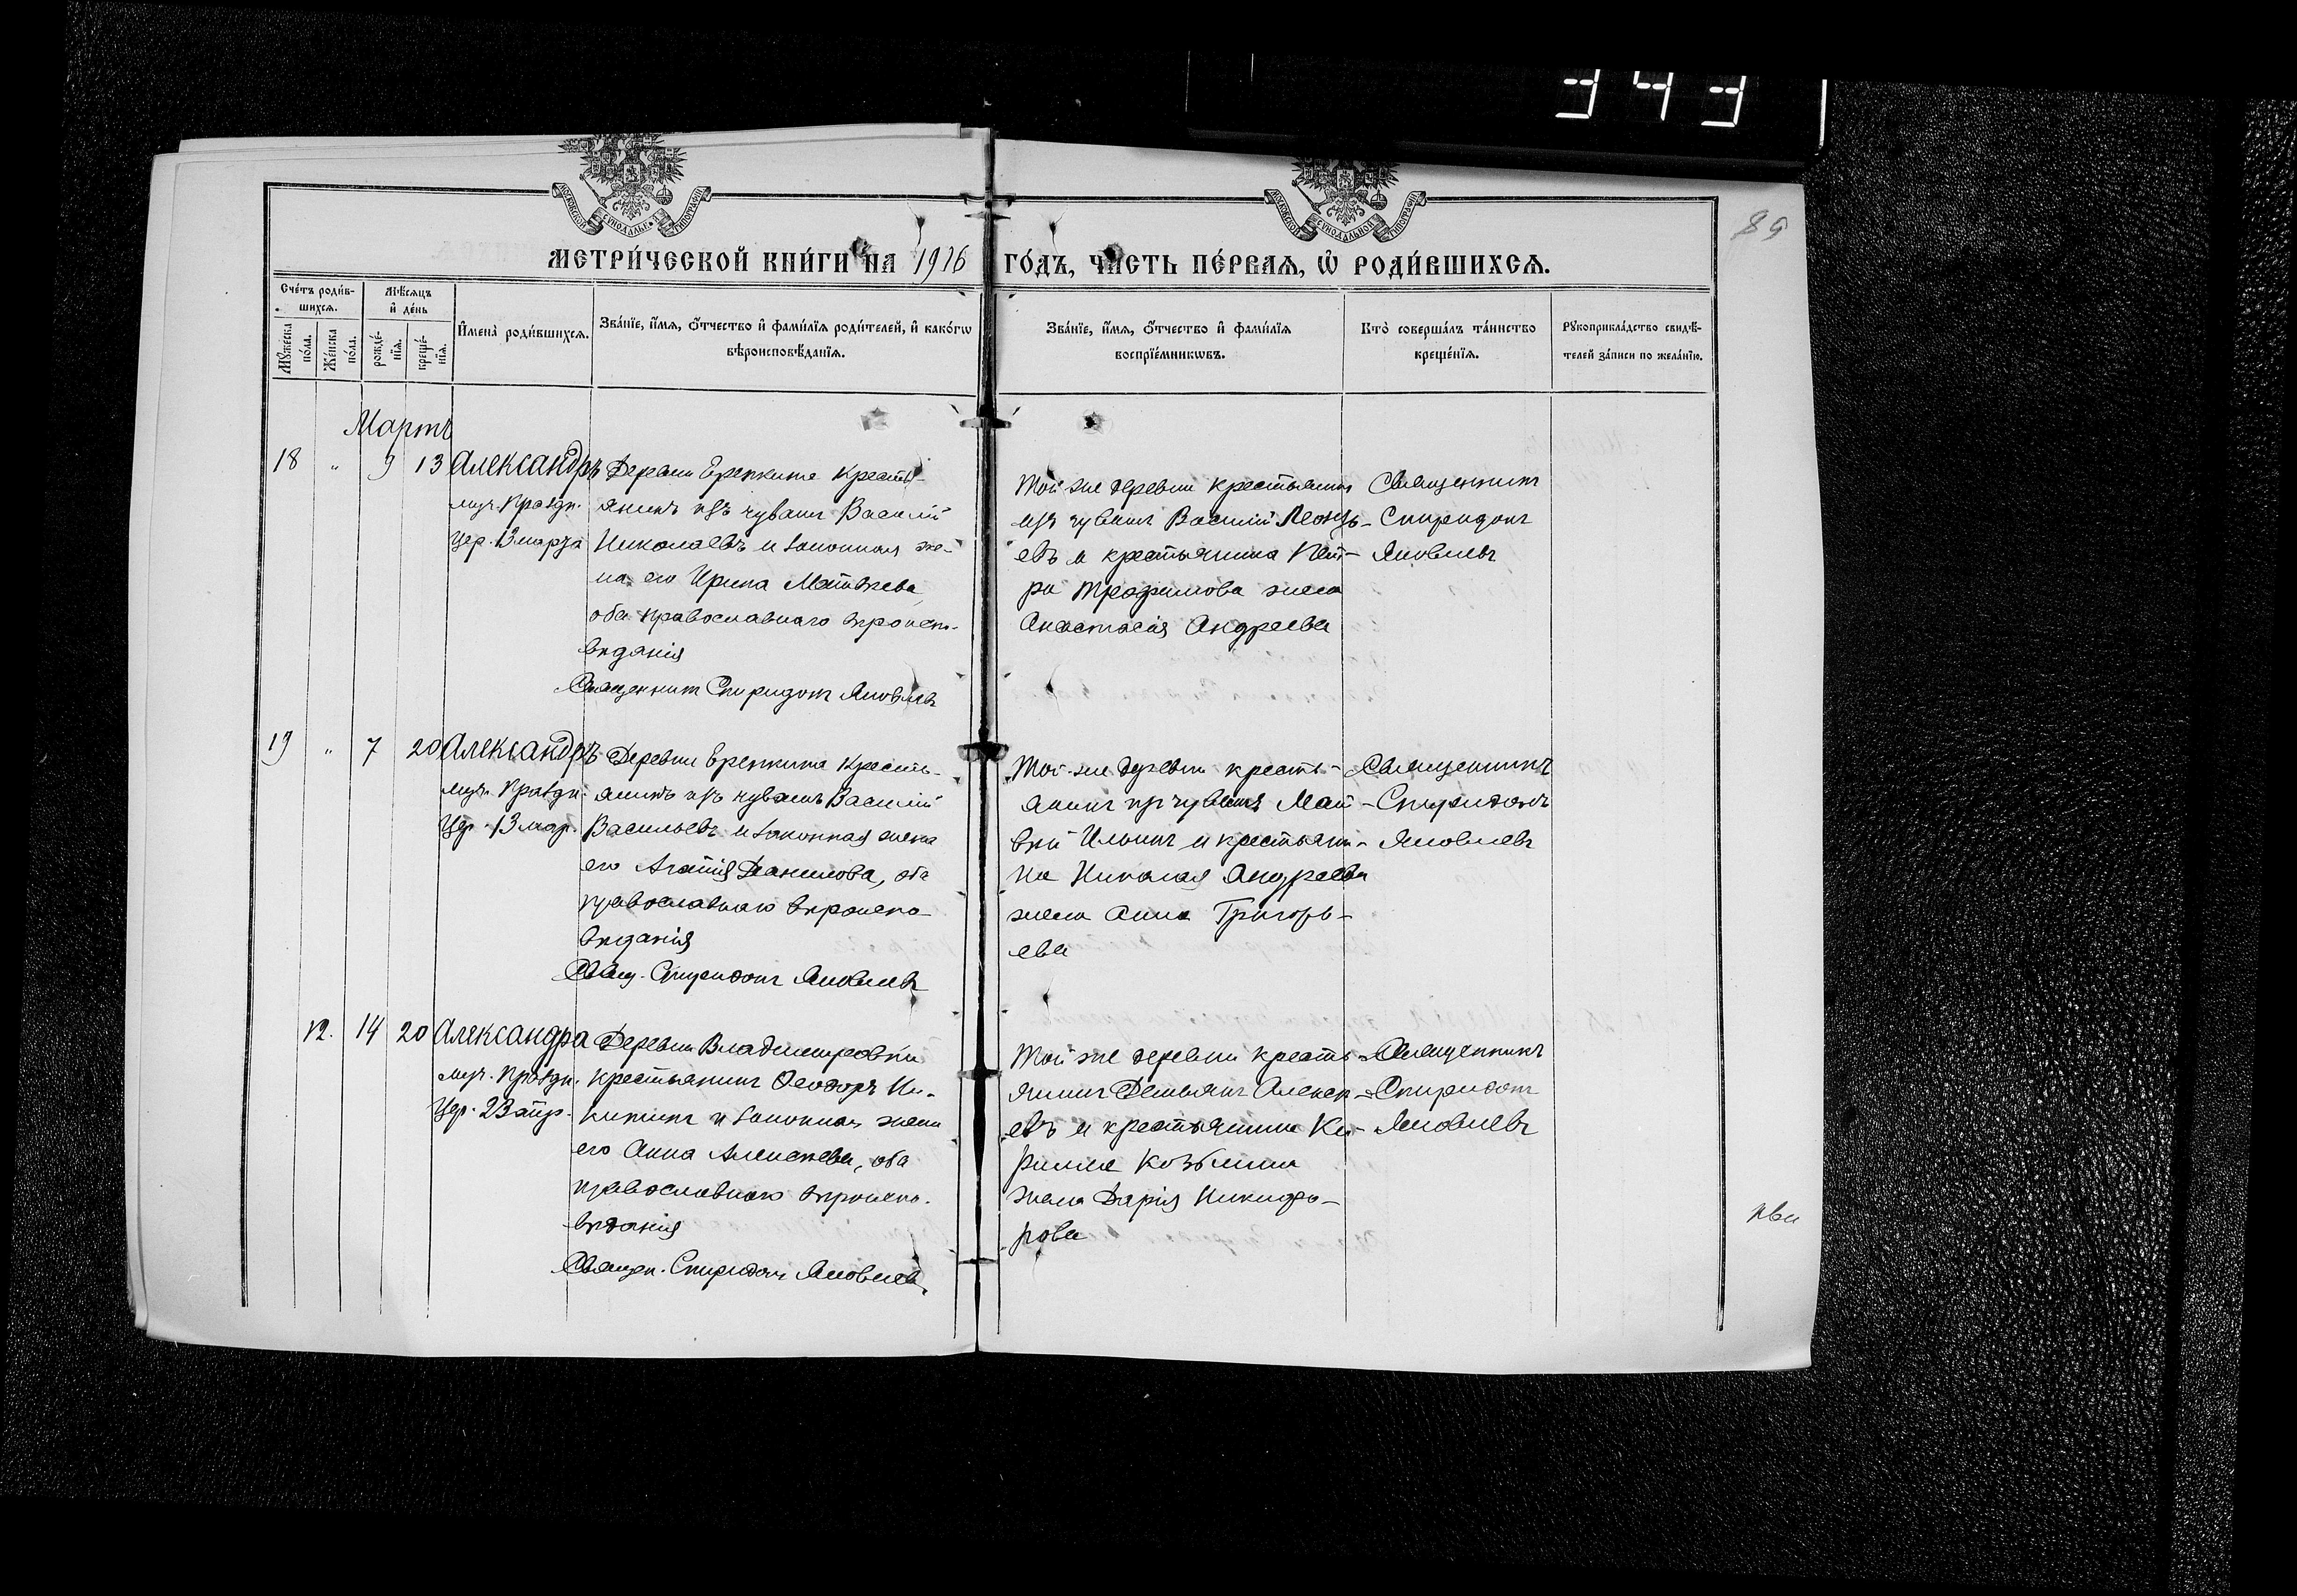 343
85
МЕТРИ́ЧЕСКОЙ КНИ́ГИ НА 1916 ГО́ДЪ, ЧА́СТЬ ПЕ́РВАЯ, Ѽ РОДИ́ВШИХСЯ.
Сче́тъ роди́в-
шихся.
Мѣ́сяцъ
и҆ де́нь
Мꙋ́жеска по́ла.
Же́нска по́ла.
рожде́-
нїя.
креще́-
нїя.
И҆мена̀ роди́вшихся.
Зва́нїе, и҆́мя, ѻ҆́тчество и҆ фами́лїя роди́телей, и҆ како́гѡ
вѣроисповѣ́данїя.
Зва́нїе, и҆́мя, ѻ҆́тчество и҆ фами́лїя
воспрїе́мникѡвъ.
Кто̀ соверша́лъ та́инство
креще́нїя.
Рꙋкоприкла́дство свидѣ́-
телей за́писи по жела́нїю.
Мартъ
18 " 9 13 Александръ
муч. праздн.
цер. 13 марта
Деревни Ерепкина крестья-
янинъ изъ чувашъ Василій
Николаевъ и законная же-
на его Ирина Матвѣева
оба православнаго вѣроиспо-
вѣданія
Священникъ Спиридонъ Яковлевъ
Той же деревни крестьянинъ
изъ чувашъ Василій
евъ и крестьянина Пет-
ра Трофимова жена
Анастасія Андреева
Священникъ
Спиридонъ
Яковлевъ
19 " 7 20 Александръ
муч. праздн.
цер. 13 мар.
Деревни Ерепкина кресть-
янинъ изъ чувашъ Василій
Васильевъ и законная жена
его Агафія Данилова, оба
православнаго вѣроиспо-
вѣданія
Свящ. Спиридонъ Яковлевъ
Той-же деревни кресть-
янинъ изъ чувашъ Мат-
вѣй Ильинъ и крестьяни-
на Николая Андреева
жена Анна Григорь-
ева
Священникъ
Спиридонъ
Яковлевъ
12. 14 20 Александра
муч. праздн.
цер. 23 апр.
Деревни Владимировки
крестьянинъ Ѳеодоръ Ни-
китинъ и законная жена
его Анна Алексѣева, оба
православнаго вѣроиспо-
вѣданія
Священ. Спиридонъ Яковлевъ
Той же деревни кресть-
янинъ Демьянъ Алексѣ-
евъ и крестьянина Ки-
рилла Козьмина
жена Дарія Никифо-
рова
Священникъ
Спиридонъ
Яковлевъ